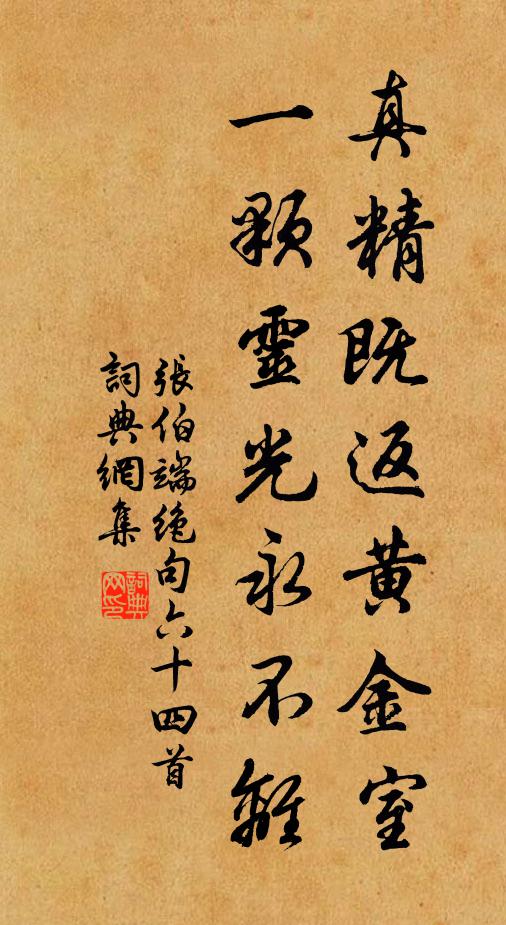 真精既返黄金室
一顆靈光永不離
張伯端絶句六十四首
詞典網集
詞典網印